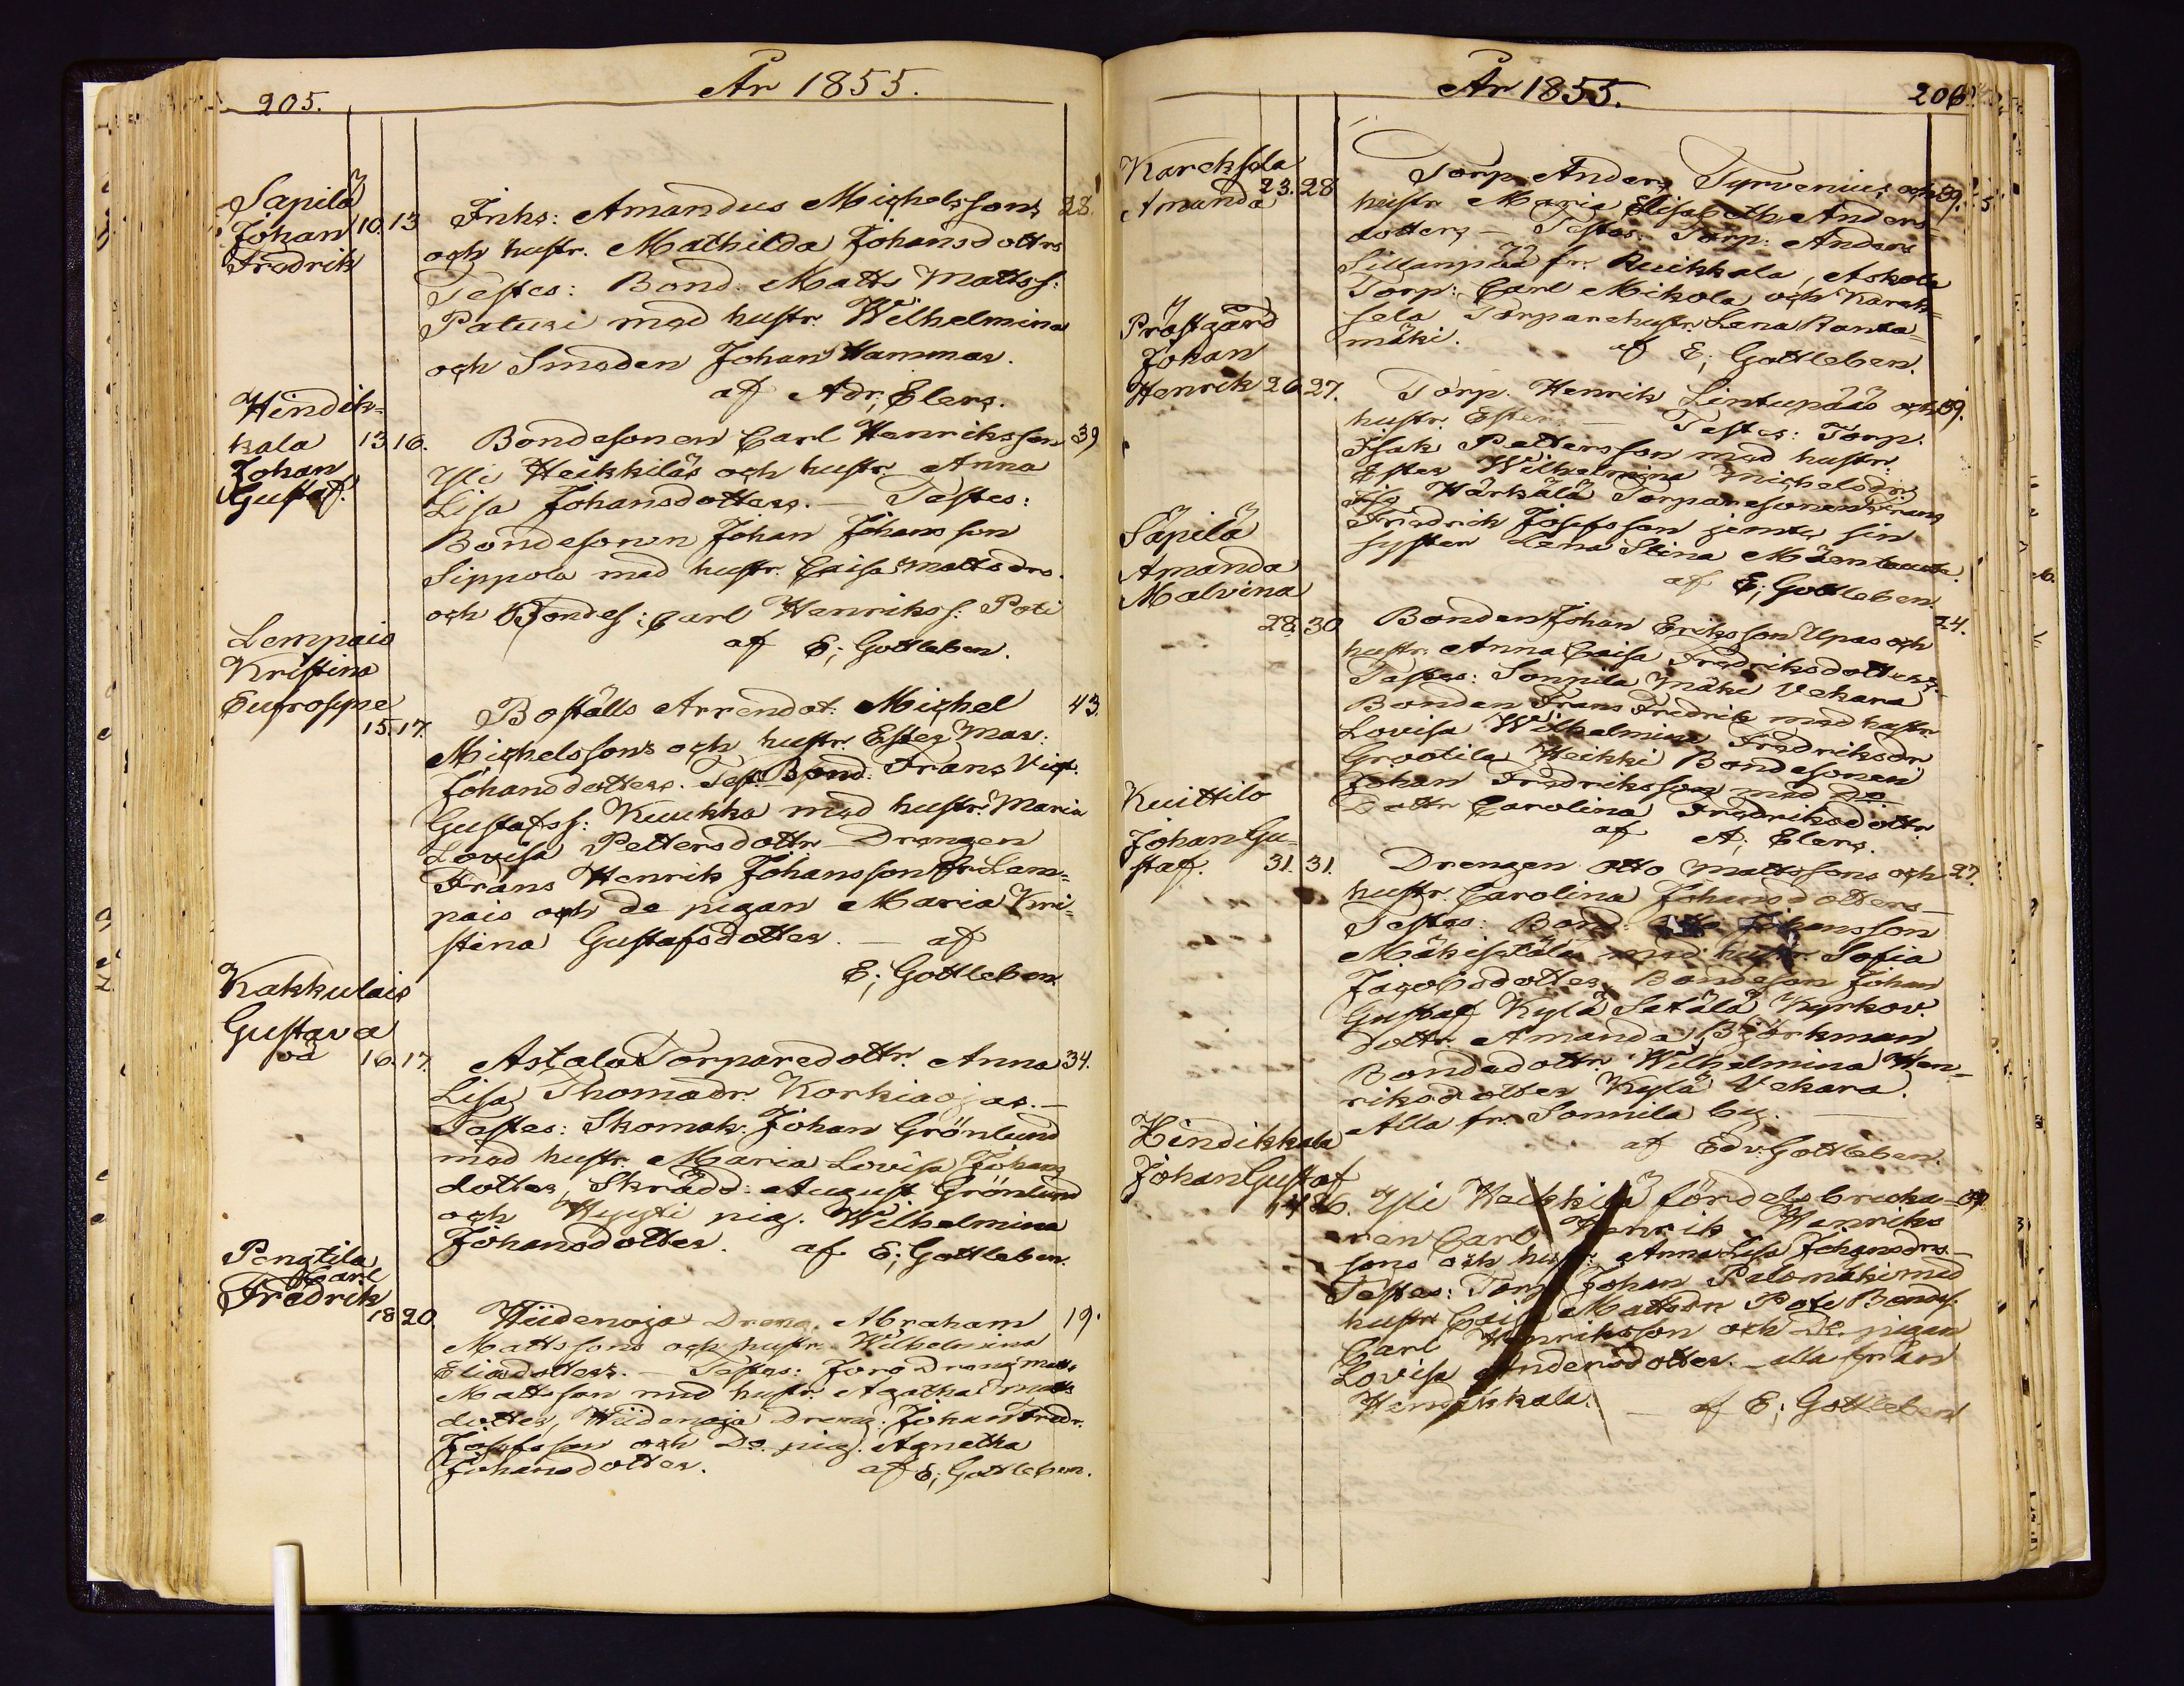 205.
År 1855.
Sapilå
Johan 10. 13
Fredrik
Inhs: Amandus Michelssons 28.
och hustr. Mathilda Johansdottrs
Testes: Bond. Matts Mattss:
Patusi med hustr. Wilhelmina
och Smeden Johan Hammar.
af Adr; Elers.
Hindik-
kala 13 16.
Johan
Gustaf.
Bondesonen Carl Henriksson 39
Yli Heikkiläs och hustr. Anna
Lisa Johansdotters. — Testes:
Bondesonen Johan Johansson
Sippola med hustr. Caisa Mattsdrs.
och Bondes: Carl Henrikss: Poti
af E; Gottleben.
Lempais
Kristina
Eufrosyne
15. 17.
Boställs Arrendat: Michel 43.
Michelssons och hustr. Ester Mar:
Johansdotters. Test. Bond. Frans Vict.
Gustafss: Kuukka med hustr. Maria
Lovisa Pettersdottr Drengen
Frans Henrik Johansson fr. Lem=
pais och do pigan Maria Kri=
stina Gustafsdotter. — af
E; Gottleben
Kakkulais
Gustava
oä 16. 17.
Astala Torparedottr. Anna 34.
Lisa Thomadr. Korkiaojas. —
Testes: Skomak. Johan Grönlund
med hustr. Maria Lovisa Johans
dotter, Skrädd: August Grönlund
och Kyyti pig. Wilhelmina
Johansdotter. af E; Gottleben.
Pengtila
Carl
Fredrik
18 20
Hiidenoja Dreng. Abraham 19.
Mattssons och hustr. Wilhelmina
Eliaedotters. — Testes: Jorå Dreng Matts
Mattsson med hustr. Agatha Matts
dotter, Hiidenoja Dreng. Johan Fredr.
Josefsson och Do. pig. Agnetha
Johansdotter. af E; Gottleben.
År 1855.
206.
Karcksela
Amanda 23. 28
Torp. Anders Tyrvenius och 39.
hustr Maria Elisabeth Anders
dotters — Testes: Torp: Anders
Sillanpää fr. Ruikkala, Askola
Torp: Carl Mikola och Karck=
sela Torparehustr. Lena Ranta=
mäki. af E; Gottleben.
Prästgård
Johan
Henrik 26 27.
Torp. Henrik Lintupääs och 39.
hustr. Ester — Testes: Torp.
Isak Pettersson med hustr.
Ester Wilhelmina Michelsdr,
Härkälä Torparesonen Frans
Fredrich Josefsson jemte sin
syster Lena Stina
af E; Gottleben.
Säpilä
Amanda
Malvina
28. 30
Bonden Johan Eriksson Upas och 24.
hustr. Anna Caisa Fredriksdotters.
Testes: Sonnila Mäki Vekara
Bonden Frans Fredrik med hustr
Lovisa Wilhelmina Fredriksdr
Grootila Heikki Bondesonen
Johan Fredriksson med Do
Dottr Carolina Fredriksdottr
af A; Elers.
Kuittilo
Johan Gu-
staf. 31. 31.
Drengen Otto Mattssons och 27.
hustr. Carolina Johansdotters —
Testes: Bond. Johansson
Mäkisetälä med hustr. Sofia
Jacobsdotter, Bondeson Johan
Gustaf Kylä Setälä, Kyrkov.
dottr. Amanda Björkman
Bondedottr. Wilhelmina Hen=
riksdotter Kylä Vekara.
Alla fr. Sonnila by. —
af Edv. Gottleben.
Hindikkala
Johan Gustaf
14 26.
Yli Heikkilä fördelsbruka-
ren Carl Henrik Henriks
sons och hustr: Anna Lisa Johansdrs —
Testes: Torp Johan Palomäki med
hustr Caisa Mattsdr Poti Bondes.
Carl Henriksson och Do. pigan
Lovisa Andersdotter. — alla från
Hendikkala. — af E; Gottleben